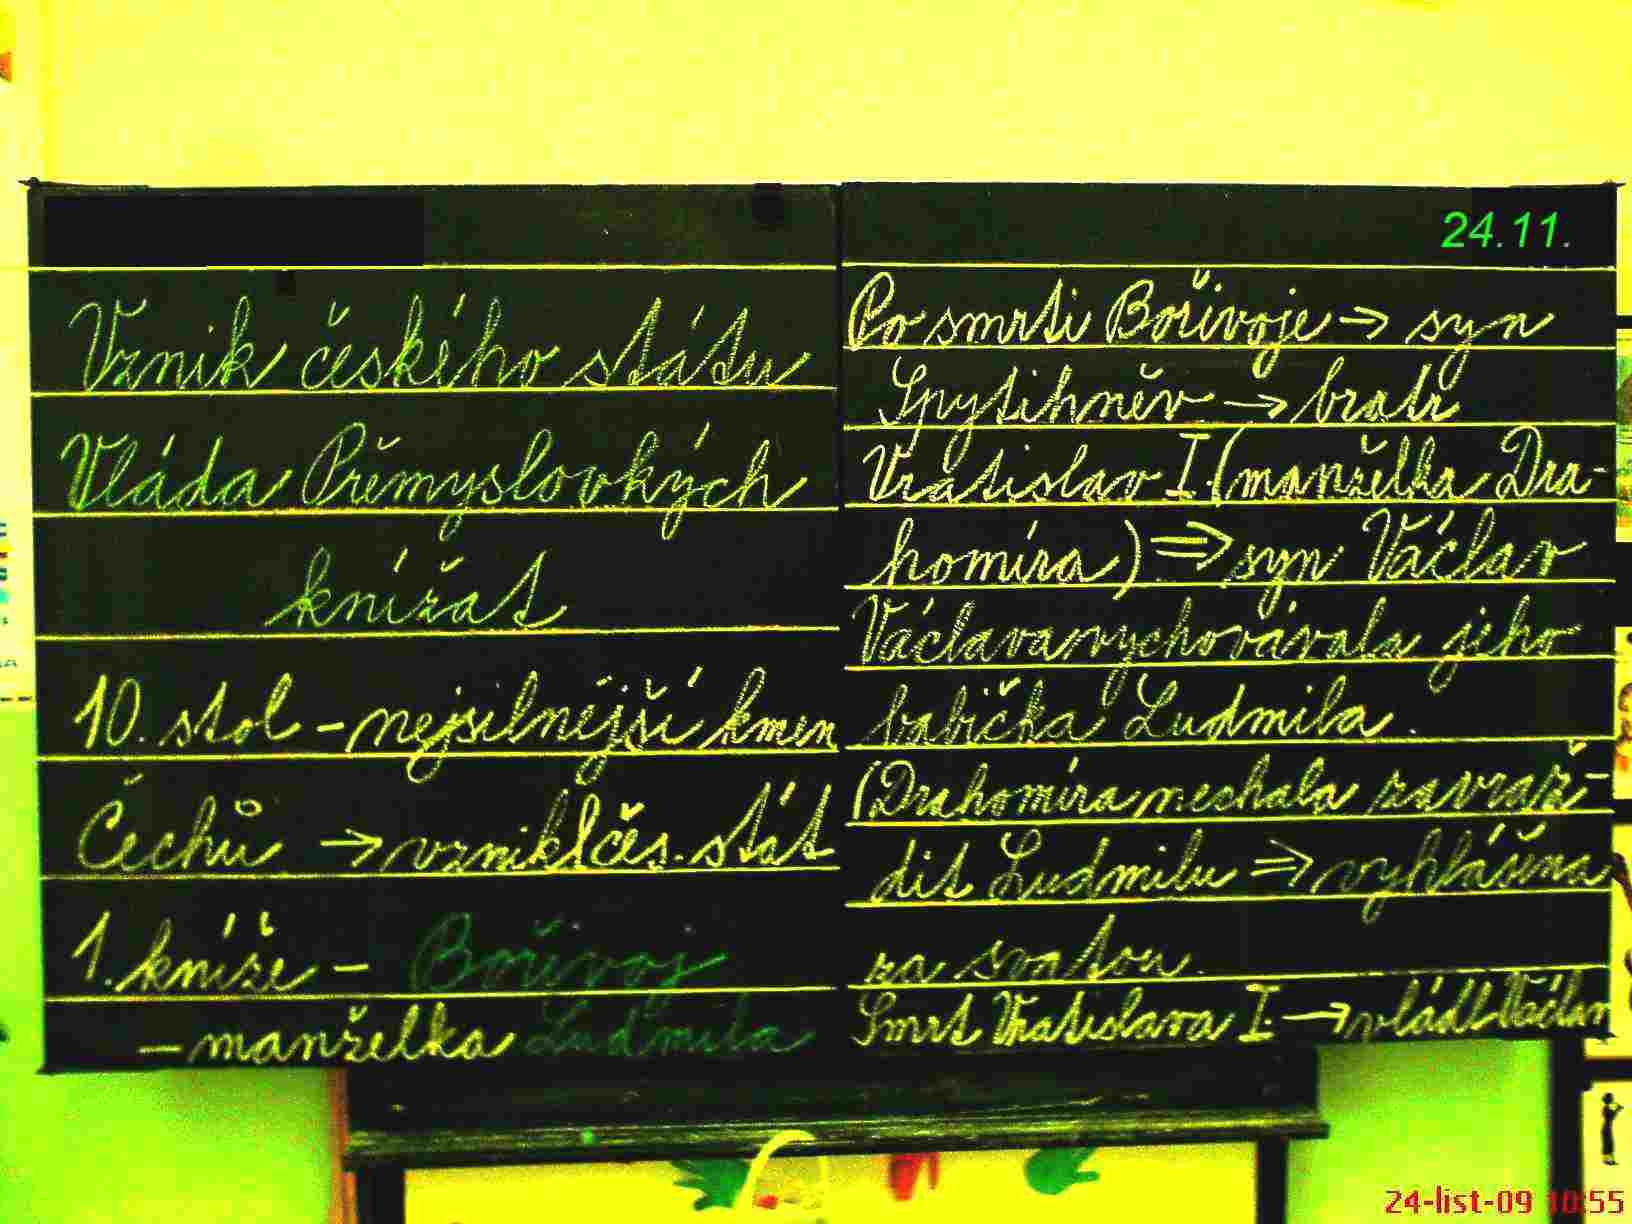 Vznik českého státu
Vláda Přemyslovkých
knížat
10. stol - nejsilnější kmen
Čechů → vznikl čes. stát
1. kníže - Bořivoj
- manželka Ludmila
24.11.
Po smrti Bořivoje → syn
Spytihněv → bratr
Vratislav I. (manželka Dra-
homíra) ⇒ syn Václav
Václava vychovávala jeho
babička Ludmila.
(Drahomíra nechala zavraž-
dit Ludmilu ⇒ vyhlášena
za svatou
Smrt Vratislava I. → vládl Václav
24-list-09 10:55